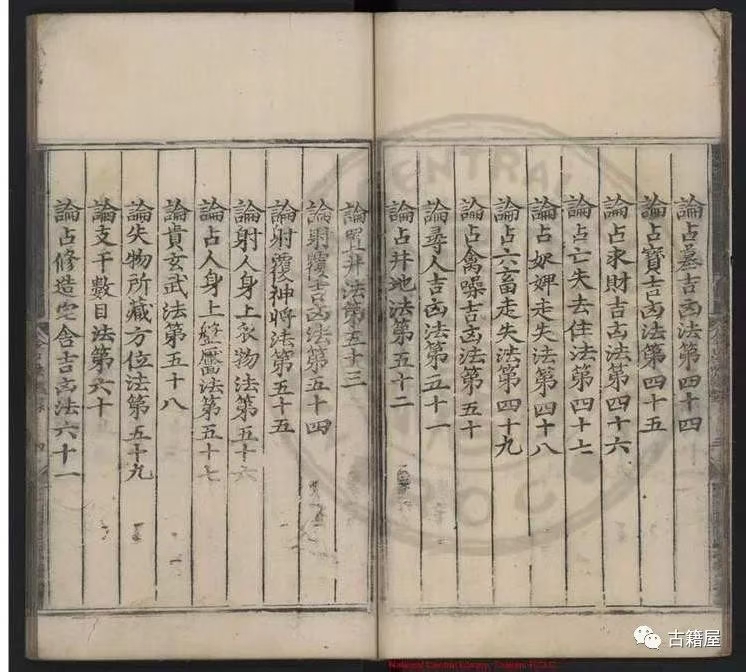 論占墓吉凶法第四十四
論占寳吉凶法第四十五
論占求財吉凶法第四十六
論占亡失去住法第四十七
論占奴婢走失法第四十八
論占六畜走失法第四十九
論占禽噪吉凶法第五十
論尋人吉凶法第五十一
論占井地法第五十二
論置井法第五十三
論射覆吉凶法第五十四
論射覆神將法第五十五
論射人身上衣物法第五十六
論占人身上盤靨法第五十七
論貴玄武法第五十八
論失物所藏方位法第五十九
論支干數目法第六十
論占修造宅舍吉凶法六十一
CENTRAL
ROC
National Central Library, Taiwan
古籍屋